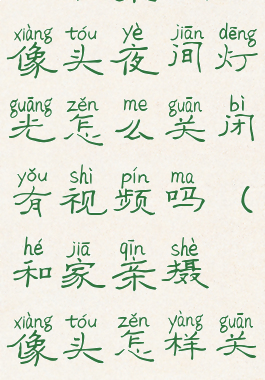 xiàng tóu yè jiān dēng
像头夜间灯
guāng zěn me guān bì
光怎么关闭
yǒu shì pín ma
有视频吗（
hé jiā qīn shè
和家亲摄
xiàng tóu zěn yàng guān
像头怎样关